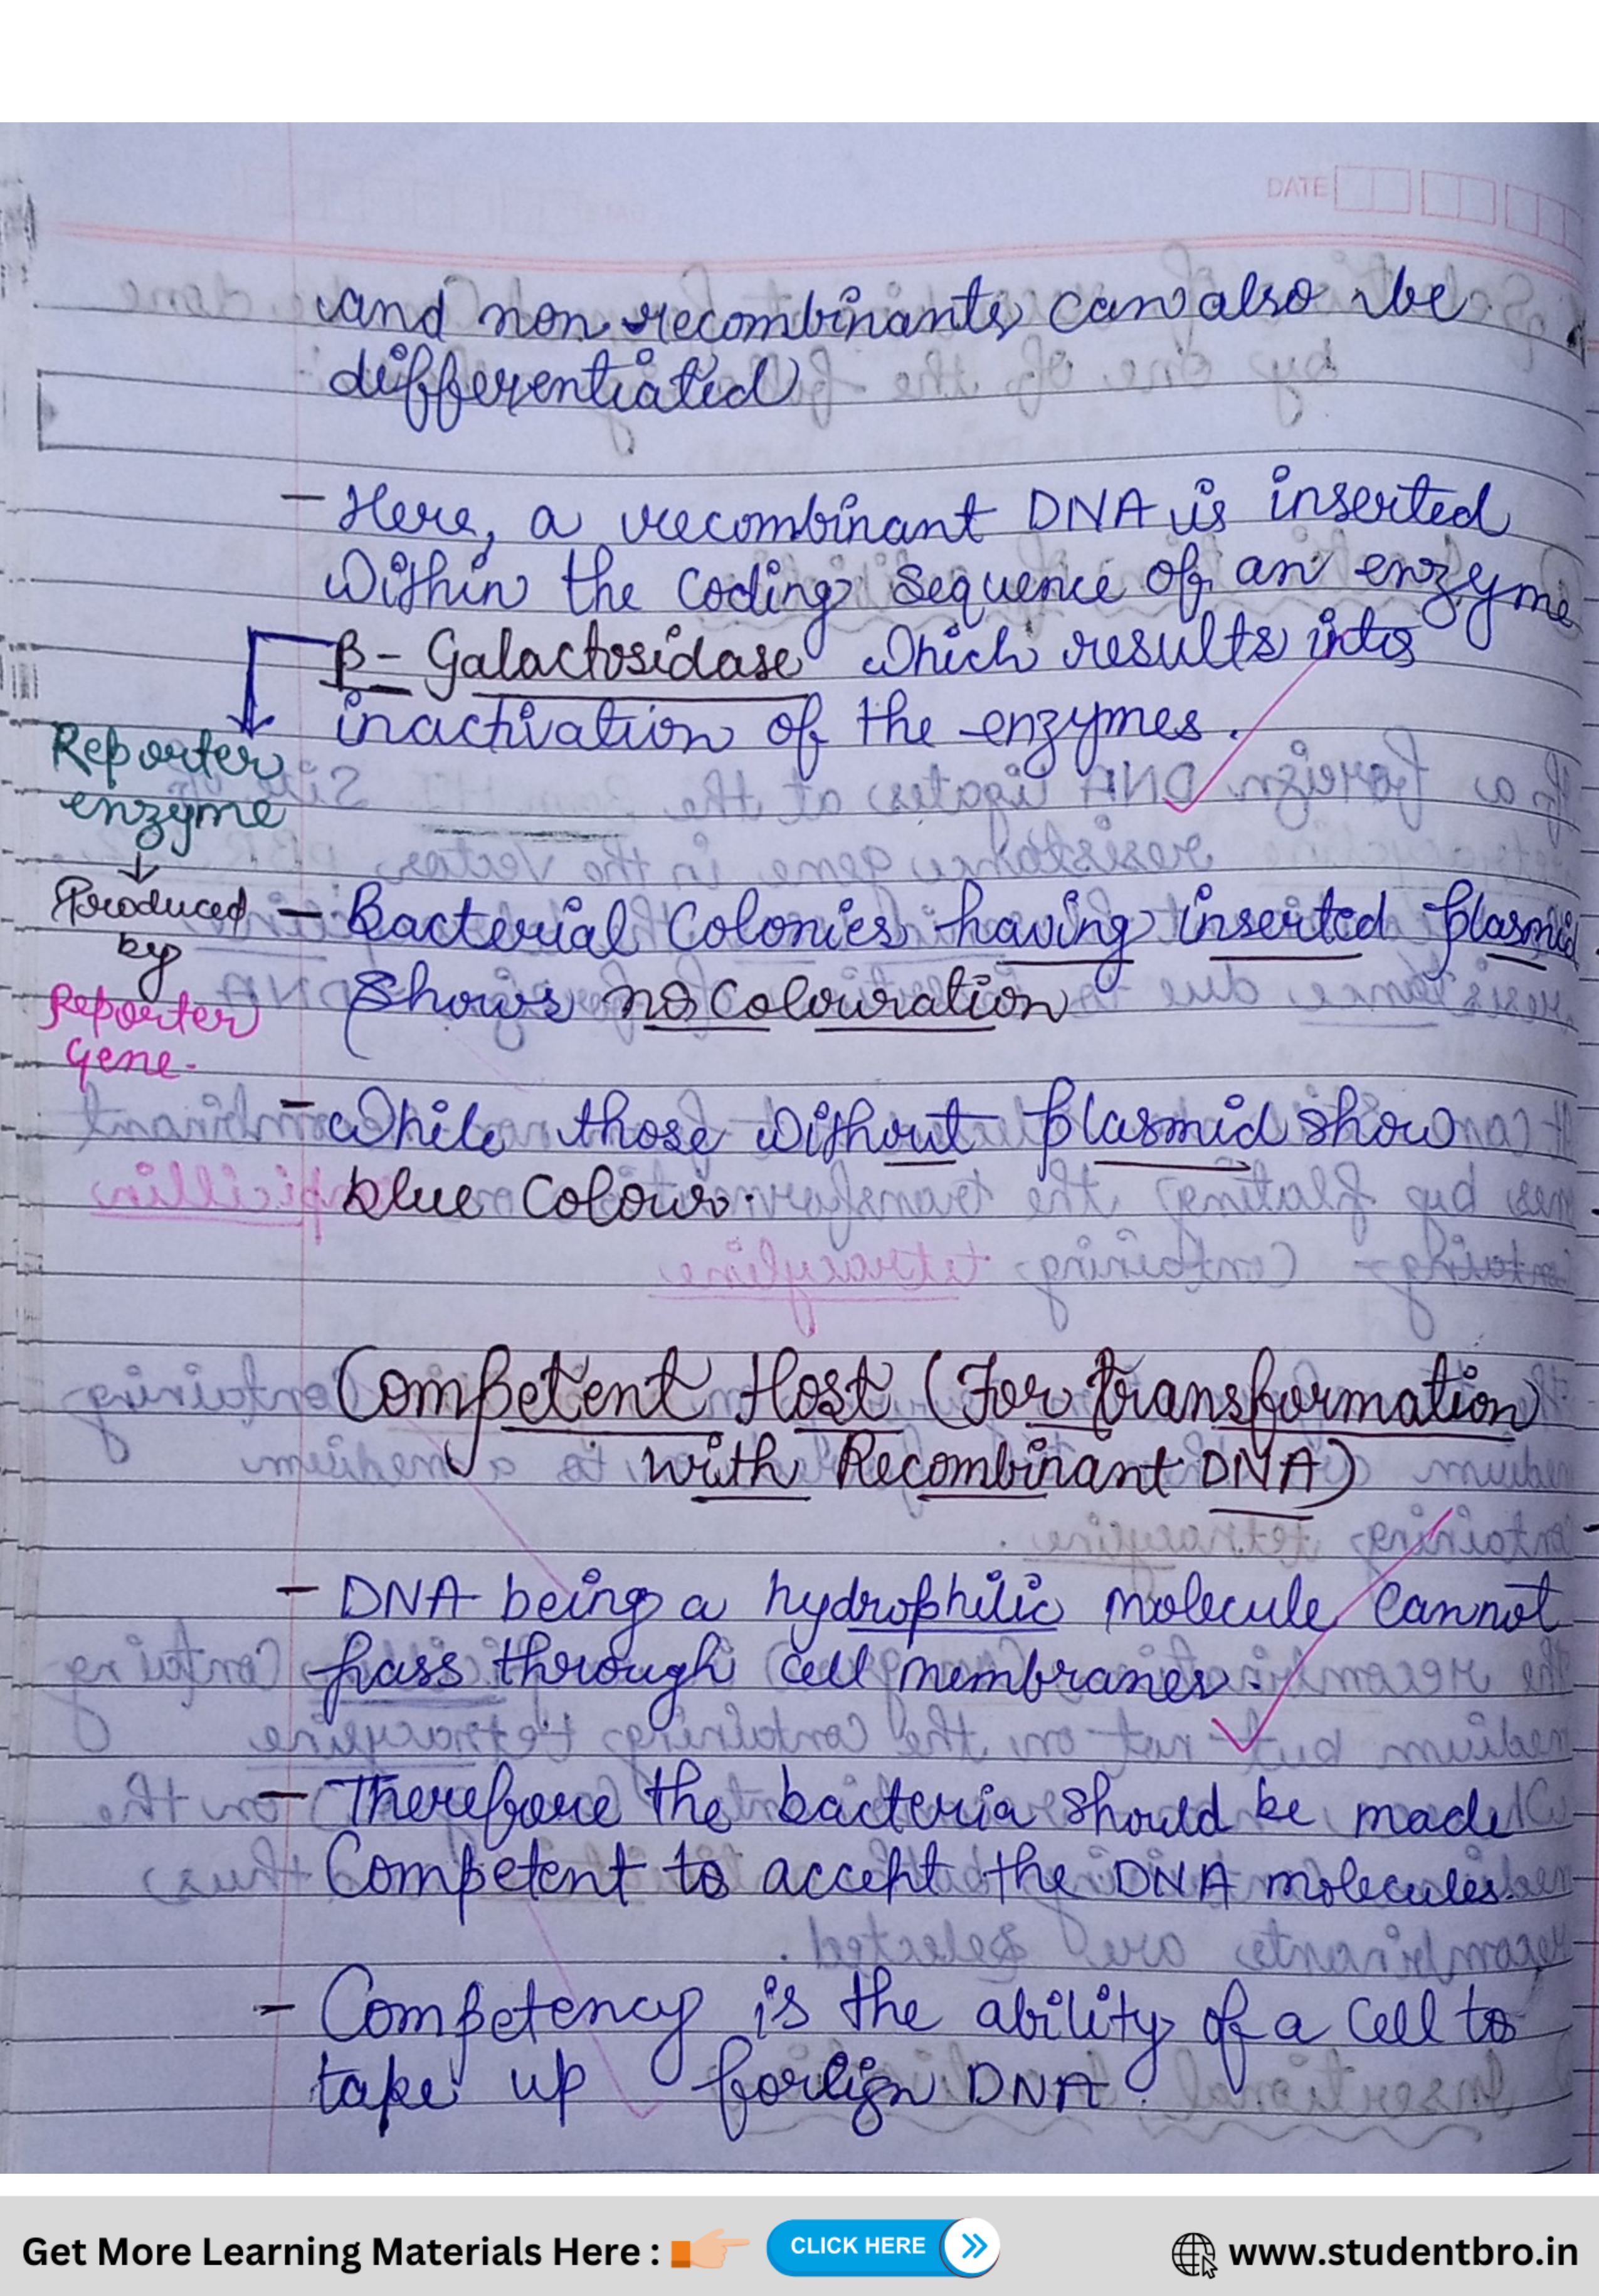 DATE
and non recombinants can also be
differentiated
- Here, a recombinant DNA is inserted
within the coding sequence of an enzyme
β- Galactosidase which results into
inactivation of the enzymes.
Reporter
enzyme
↓
Produced
by
Reporter
gene-
- Bacterial Colonies having inserted plasmid
shows no colouration
- while those without plasmid show
blue colour.
Competent Host (For transformation
with Recombinant DNA)
- DNA being a hydrophilic molecule cannot
pass through cell membranes.
- Therefore the bacteria should be made
Competent to accept the DNA molecules.
- Competency is the ability of a cell to
take up foreign DNA.
Get More Learning Materials Here :
CLICK HERE
www.studentbro.in